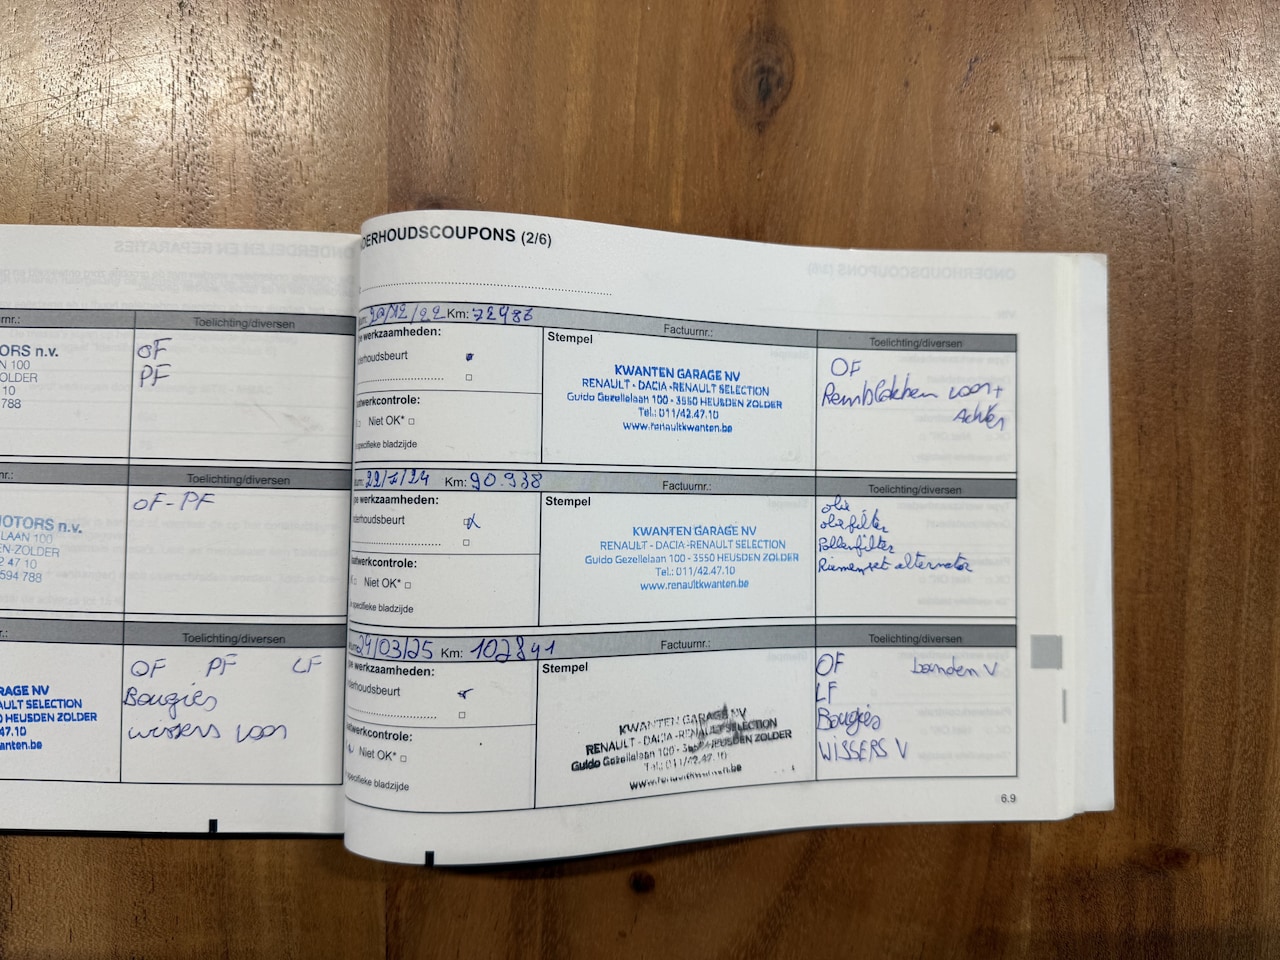 Toelichting/diversen
ORS n.v.
N 100
ZOLDER
10
788
OF
PF
Toelichting/diversen
MOTORS n.v.
LAAN 100
EN-ZOLDER
2 47 10
594 788
OF-PF
Toelichting/diversen
RAGE NV
AULT SELECTION
0 HEUSDEN ZOLDER
47.10
anten.be
OF PF LF
Bougies
wissers voor
DERHOUDSCOUPONS (2/6)
Km: 72986
Factuurnr.:
Toelichting/diversen
pe werkzaamheden:
derhoudsbeurt
aatwerkcontrole:
Niet OK*
specifieke bladzijde
Stempel
KWANTEN GARAGE NV
RENAULT - DACIA - RENAULT SELECTION
Guido Gezellelaan 100 - 3550 HEUSDEN ZOLDER
Tel.: 011/42.47.10
www.renaultkwanten.be
OF
Remblokken voor +
Achter
22/7/24 Km: 90.938
Factuurnr.:
Toelichting/diversen
pe werkzaamheden:
derhoudsbeurt
aatwerkcontrole:
Niet OK*
specifieke bladzijde
Stempel
KWANTEN GARAGE NV
RENAULT - DACIA - RENAULT SELECTION
Guido Gezellelaan 100 - 3550 HEUSDEN ZOLDER
Tel.: 011/42.47.10
www.renaultkwanten.be
olie
oliefilter
Pollenfilter
Riemenset alternator
24/03/25 Km: 102841
Factuurnr.:
Toelichting/diversen
pe werkzaamheden:
derhoudsbeurt
aatwerkcontrole:
Niet OK*
specifieke bladzijde
Stempel
KWANTEN GARAGE NV
RENAULT - DACIA - RENAULT SELECTION
Guido Gezellelaan 100 - 3550 HEUSDEN ZOLDER
Tel.: 011/42.47.10
www.renaultkwanten.be
OF banden V
LF
Bougies
WISSERS V
6.9